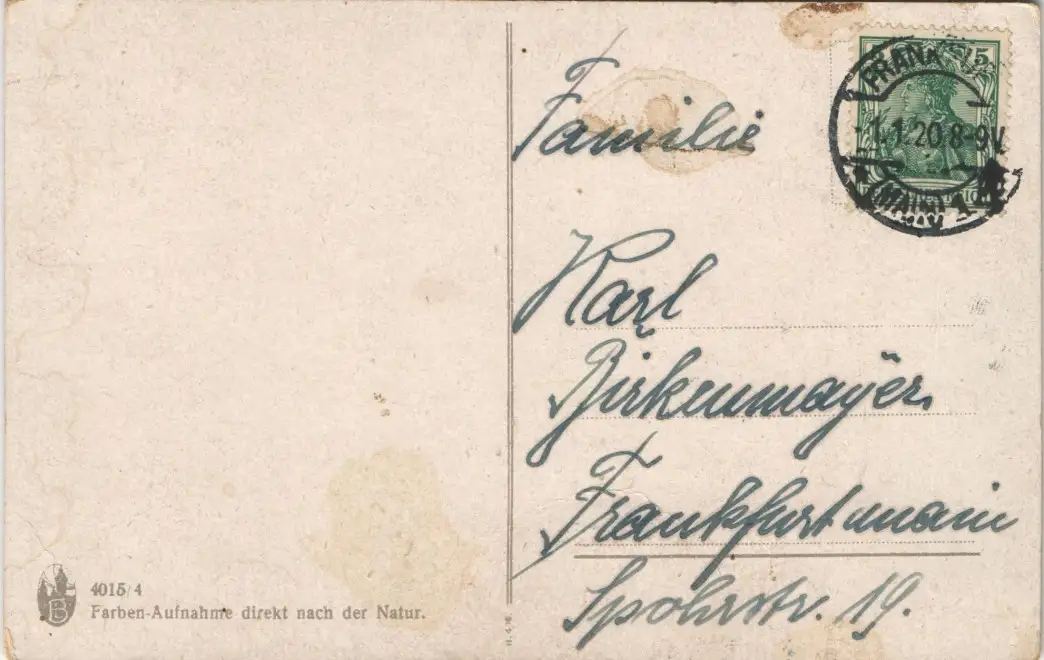 5
FRANKFURT
-1.1.20.8-9V
(MAIN) 1
Familie
Karl
Birkenmayer
Frankfurt main
Spohrstr. 19.
B
4015/4
Farben-Aufnahme direkt nach der Natur.